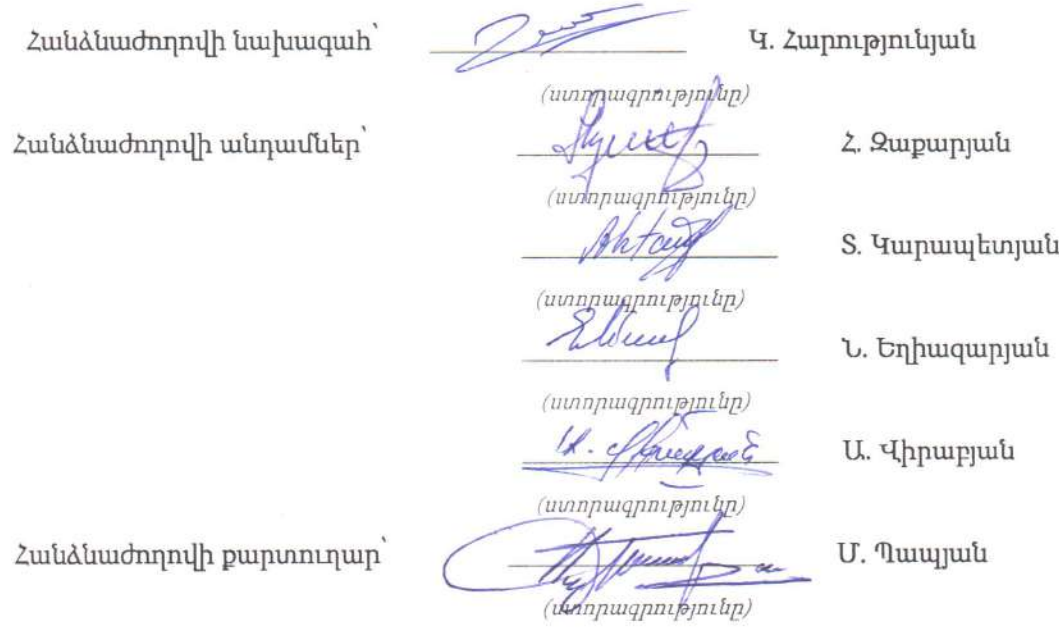 Հանձնաժողովի նախագահ՝ Կ. Հարությունյան
(ստորագրությունը)
Հանձնաժողովի անդամներ՝ Հ. Զաքարյան
(ստորագրությունը)
Տ. Կարապետյան
(ստորագրությունը)
Ն. Եղիազարյան
(ստորագրությունը)
Ա. Վիրաբյան
(ստորագրությունը)
Հանձնաժողովի քարտուղար՝ Մ. Պապյան
(ստորագրությունը)